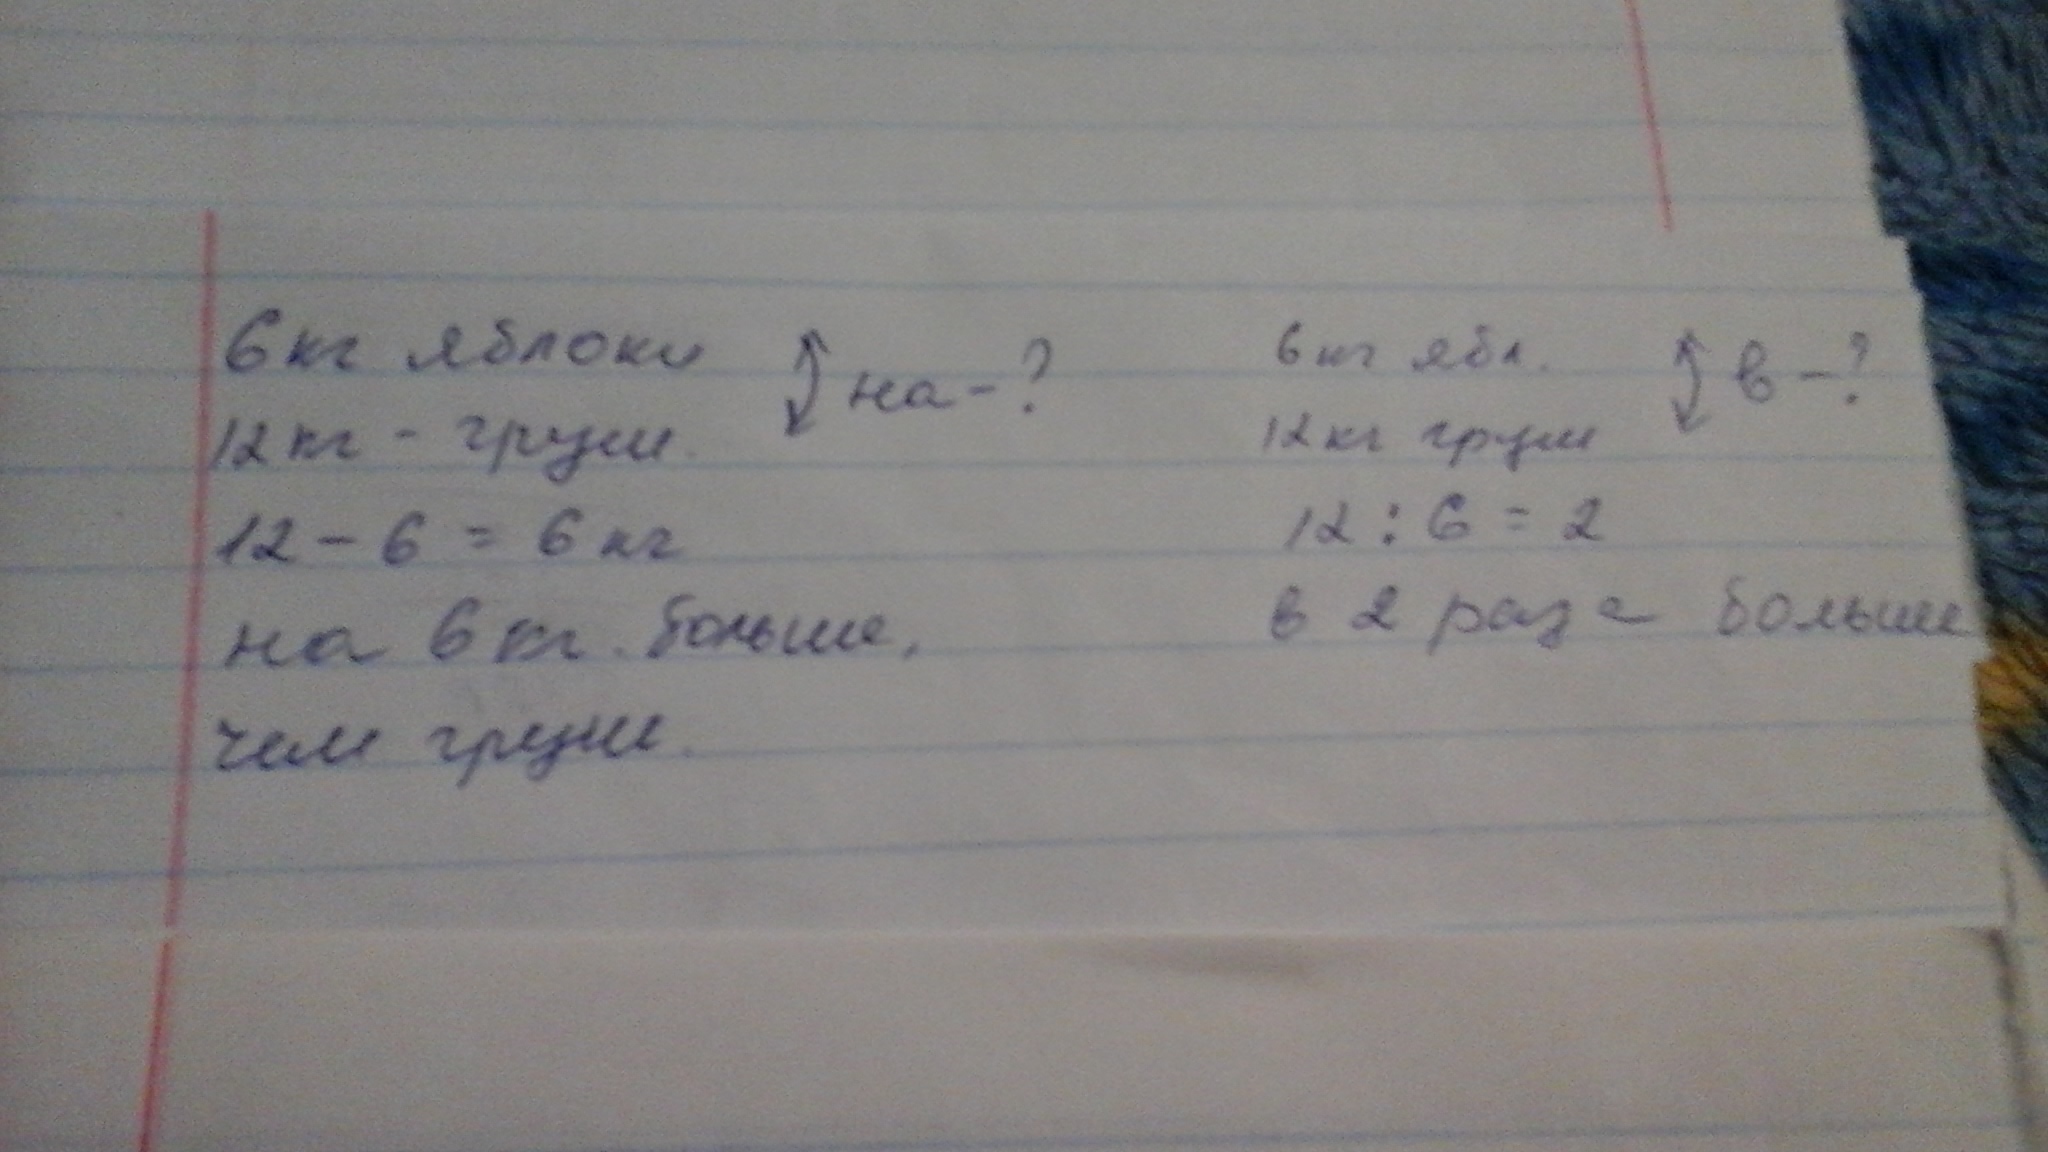 6кг яблоки на-?
12кг - груши.
12 - 6 = 6 кг
на 6 кг. больше,
чем груши.
6 кг ябл. в -?
12кг груши
12 : 6 = 2
в 2 раза больше